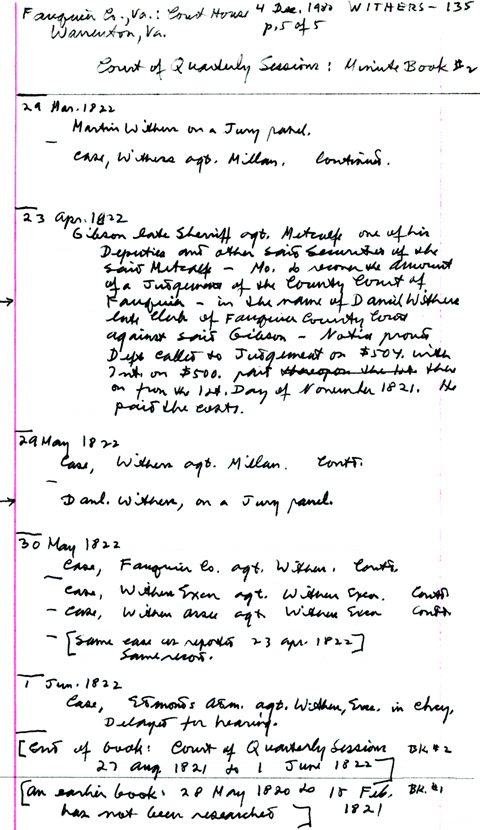 Fauquier Co., Va.: Court House 4 Dec. 1980 WITHERS - 135
Warrenton, Va. p. 5 of 5
Court of Quarterly Sessions: Minute Book #2
29 Mar. 1822
Martin Withers on a Jury panel.
Case, Withers agt. Millan. Continued.
23 Apr. 1822
Gibson late Sheriff agt. Metcalfe one of his
Deputies and other said Securities of the
said Metcalfe - Mo. to recover the amount
of a Judgement of the County Court of
Fauquier - in the name of Daniel Withers
late Clerk of Fauquier County Court
against said Gibson - Notice proved
Deft called to Judgement on $504. with
Int. on $500. paid thereupon the 1st there
on from the 1st. Day of November 1821. He
paid the costs.
29 May 1822
Case, Withers agt. Millan. Contd.
Danl. Withers, on a Jury panel.
30 May 1822
Case, Fauquier Co. agt. Withers. Contd.
Case, Withers Exen agt. Withers Exen. Contd
- Case, Withers assee agt Withers Exen Contd
- [Same case as reported 23 Apr. 1822]
Same result.
1 Jun. 1822
Case, Edmonds Adm. agt. Withers, Exec. in chcy,
Delayed for hearing.
[End of book: Court of Quarterly Session Bk. #2
27 Aug 1821 to 1 June 1822]
[An earlier book: 28 May 1820 to 15 Feb. Bk. #1
has not been researched] 1821